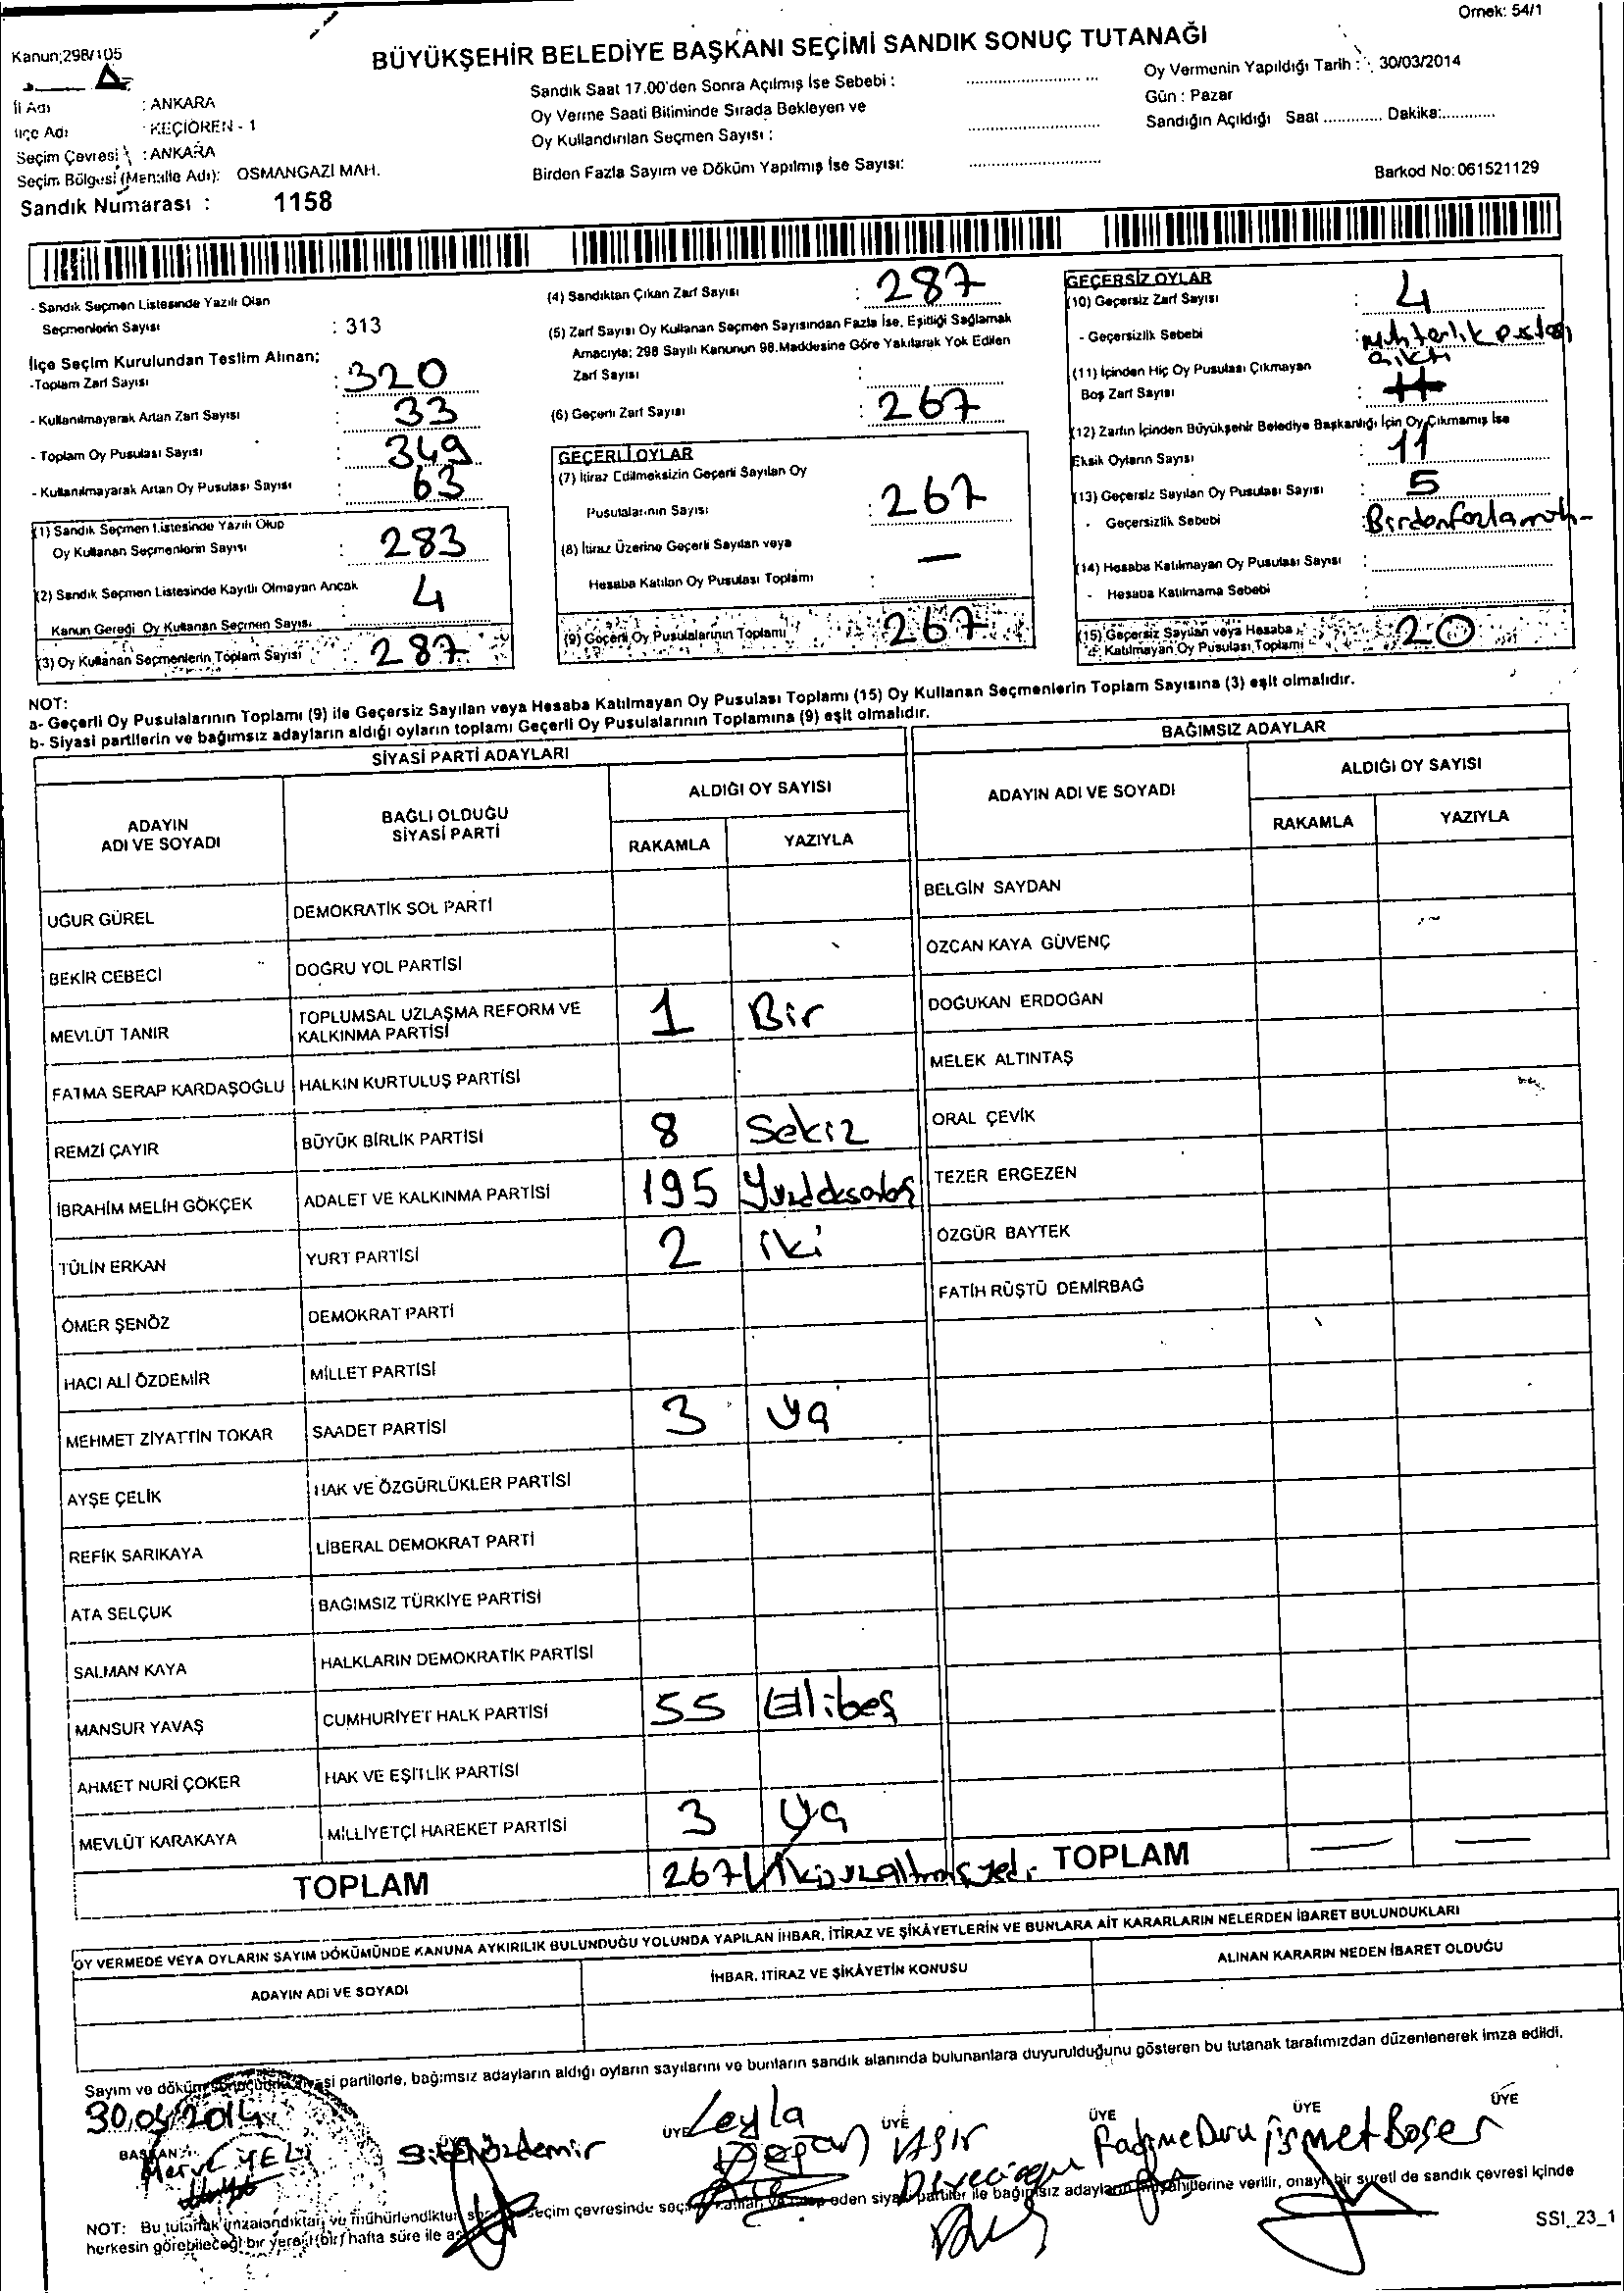 Örnek: 54/1
Kanun;298/105
BÜYÜKŞEHİR BELEDİYE BAŞKANI SEÇİMİ SANDIK SONUÇ TUTANAĞI
İl Adı : ANKARA
İlçe Adı : KEÇİÖREN - 1
Seçim Çevresi : ANKARA
Seçim Bölgesi (Mahalle Adı): OSMANGAZİ MAH.
Sandık Numarası : 1158
Sandık Saat 17.00'den Sonra Açılmış İse Sebebi :
Oy Verme Saati Bitiminde Sırada Bekleyen ve
Oy Kullandırılan Seçmen Sayısı :
Birden Fazla Sayım ve Döküm Yapılmış İse Sayısı:
Oy Vermenin Yapıldığı Tarih : 30/03/2014
Gün : Pazar
Sandığın Açıldığı Saat ............ Dakika:............
Barkod No:061521129
- Sandık Seçmen Listesinde Yazılı Olan
Seçmenlerin Sayısı : 313
İlçe Seçim Kurulundan Teslim Alınan;
-Toplam Zarf Sayısı : 320
- Kullanılmayarak Artan Zarf Sayısı : 33
- Toplam Oy Pusulası Sayısı : 349
- Kullanılmayarak Artan Oy Pusulası Sayısı : 63
(1) Sandık Seçmen Listesinde Yazılı Olup
Oy Kullanan Seçmenlerin Sayısı : 283
(2) Sandık Seçmen Listesinde Kayıtlı Olmayan Ancak
Kanun Gereği Oy Kullanan Seçmen Sayısı : 4
(3) Oy Kullanan Seçmenlerin Toplam Sayısı : 287
(4) Sandıktan Çıkan Zarf Sayısı : 287
(5) Zarf Sayısı Oy Kullanan Seçmen Sayısından Fazla İse, Eşitliği Sağlamak
Amacıyla; 298 Sayılı Kanunun 98.Maddesine Göre Yakılarak Yok Edilen
Zarf Sayısı :
(6) Geçerli Zarf Sayısı : 267
GEÇERLİ OYLAR
(7) İtiraz Edilmeksizin Geçerli Sayılan Oy
Pusulalarının Sayısı : 267
(8) İtiraz Üzerine Geçerli Sayılan veya
Hesaba Katılan Oy Pusulası Toplamı : —
(9) Geçerli Oy Pusulalarının Toplamı : 267
GEÇERSİZ OYLAR
(10) Geçersiz Zarf Sayısı : 4
- Geçersizlik Sebebi : muhtarlık
çıktı
(11) İçinden Hiç Oy Pusulası Çıkmayan
Boş Zarf Sayısı :
(12) Zarfın İçinden Büyükşehir Belediye Başkanlığı İçin Oy Çıkmamış İse
Eksik Oyların Sayısı : 11
(13) Geçersiz Sayılan Oy Pusulası Sayısı : 5
- Geçersizlik Sebebi : Birden fazla
(14) Hesaba Katılmayan Oy Pusulası Sayısı :
- Hesaba Katılmama Sebebi :
(15) Geçersiz Sayılan veya Hesaba
Katılmayan Oy Pusulası Toplamı : 20
NOT:
a- Geçerli Oy Pusulalarının Toplamı (9) ile Geçersiz Sayılan veya Hesaba Katılmayan Oy Pusulası Toplamı (15) Oy Kullanan Seçmenlerin Toplam Sayısına (3) eşit olmalıdır.
b- Siyasi partilerin ve bağımsız adayların aldığı oyların toplamı Geçerli Oy Pusulalarının Toplamına (9) eşit olmalıdır.
SİYASİ PARTİ ADAYLARI
ADAYIN ADI VE SOYADI
BAĞLI OLDUĞU SİYASİ PARTİ
ALDIĞI OY SAYISI
RAKAMLA YAZIYLA
UĞUR GÜREL DEMOKRATİK SOL PARTİ
BEKİR CEBECİ DOĞRU YOL PARTİSİ
MEVLÜT TANIR TOPLUMSAL UZLAŞMA REFORM VE KALKINMA PARTİSİ 1 Bir
FATMA SERAP KARDAŞOĞLU HALKIN KURTULUŞ PARTİSİ
REMZİ ÇAYIR BÜYÜK BİRLİK PARTİSİ 8 Sekiz
İBRAHİM MELİH GÖKÇEK ADALET VE KALKINMA PARTİSİ 195
TÜLİN ERKAN YURT PARTİSİ 2 iki
ÖMER ŞENÖZ DEMOKRAT PARTİ
HACI ALİ ÖZDEMİR MİLLET PARTİSİ
MEHMET ZİYATTİN TOKAR SAADET PARTİSİ 3 üç
AYŞE ÇELİK HAK VE ÖZGÜRLÜKLER PARTİSİ
REFİK SARIKAYA LİBERAL DEMOKRAT PARTİ
ATA SELÇUK BAĞIMSIZ TÜRKİYE PARTİSİ
SALMAN KAYA HALKLARIN DEMOKRATİK PARTİSİ
MANSUR YAVAŞ CUMHURİYET HALK PARTİSİ 55 Elibeş
AHMET NURİ ÇOKER HAK VE EŞİTLİK PARTİSİ
MEVLÜT KARAKAYA MİLLİYETÇİ HAREKET PARTİSİ 3 üç
TOPLAM 267 ikiyüzaltmışyedi
BAĞIMSIZ ADAYLAR
ADAYIN ADI VE SOYADI
ALDIĞI OY SAYISI
RAKAMLA YAZIYLA
BELGİN SAYDAN
ÖZCAN KAYA GÜVENÇ
DOĞUKAN ERDOĞAN
MELEK ALTINTAŞ
ORAL ÇEVİK
TEZER ERGEZEN
ÖZGÜR BAYTEK
FATİH RÜŞTÜ DEMİRBAĞ
TOPLAM — —
OY VERMEDE VEYA OYLARIN SAYIM DÖKÜMÜNDE KANUNA AYKIRILIK BULUNDUĞU YOLUNDA YAPILAN İHBAR, İTİRAZ VE ŞİKÂYETLERİN VE BUNLARA AİT KARARLARIN NELERDEN İBARET BULUNDUKLARI
ADAYIN ADI VE SOYADI
İHBAR, İTİRAZ VE ŞİKÂYETİN KONUSU
ALINAN KARARIN NEDEN İBARET OLDUĞU
Sayım ve döküm sonucunda siyasi partilerle, bağımsız adayların aldığı oyların sayılarını ve bunların sandık alanında bulunanlara duyurulduğunu gösteren bu tutanak tarafımızdan düzenlenerek imza edildi.
30.03.2014
BAŞKAN ÜYE ÜYE ÜYE ÜYE ÜYE
Merve YELİ
Özdemir
Leyla Doğan
Fadime Duru
ismet Boser
NOT: Bu tutanak imzalandıktan ve mühürlendikten seçim çevresinde eden siyasi partiler ile bağımsız adayların müşahitlerine verilir, onaylı bir sureti de sandık çevresi içinde
herkesin görebileceği bir yere (bir) hafta süre ile
SSI_23_1